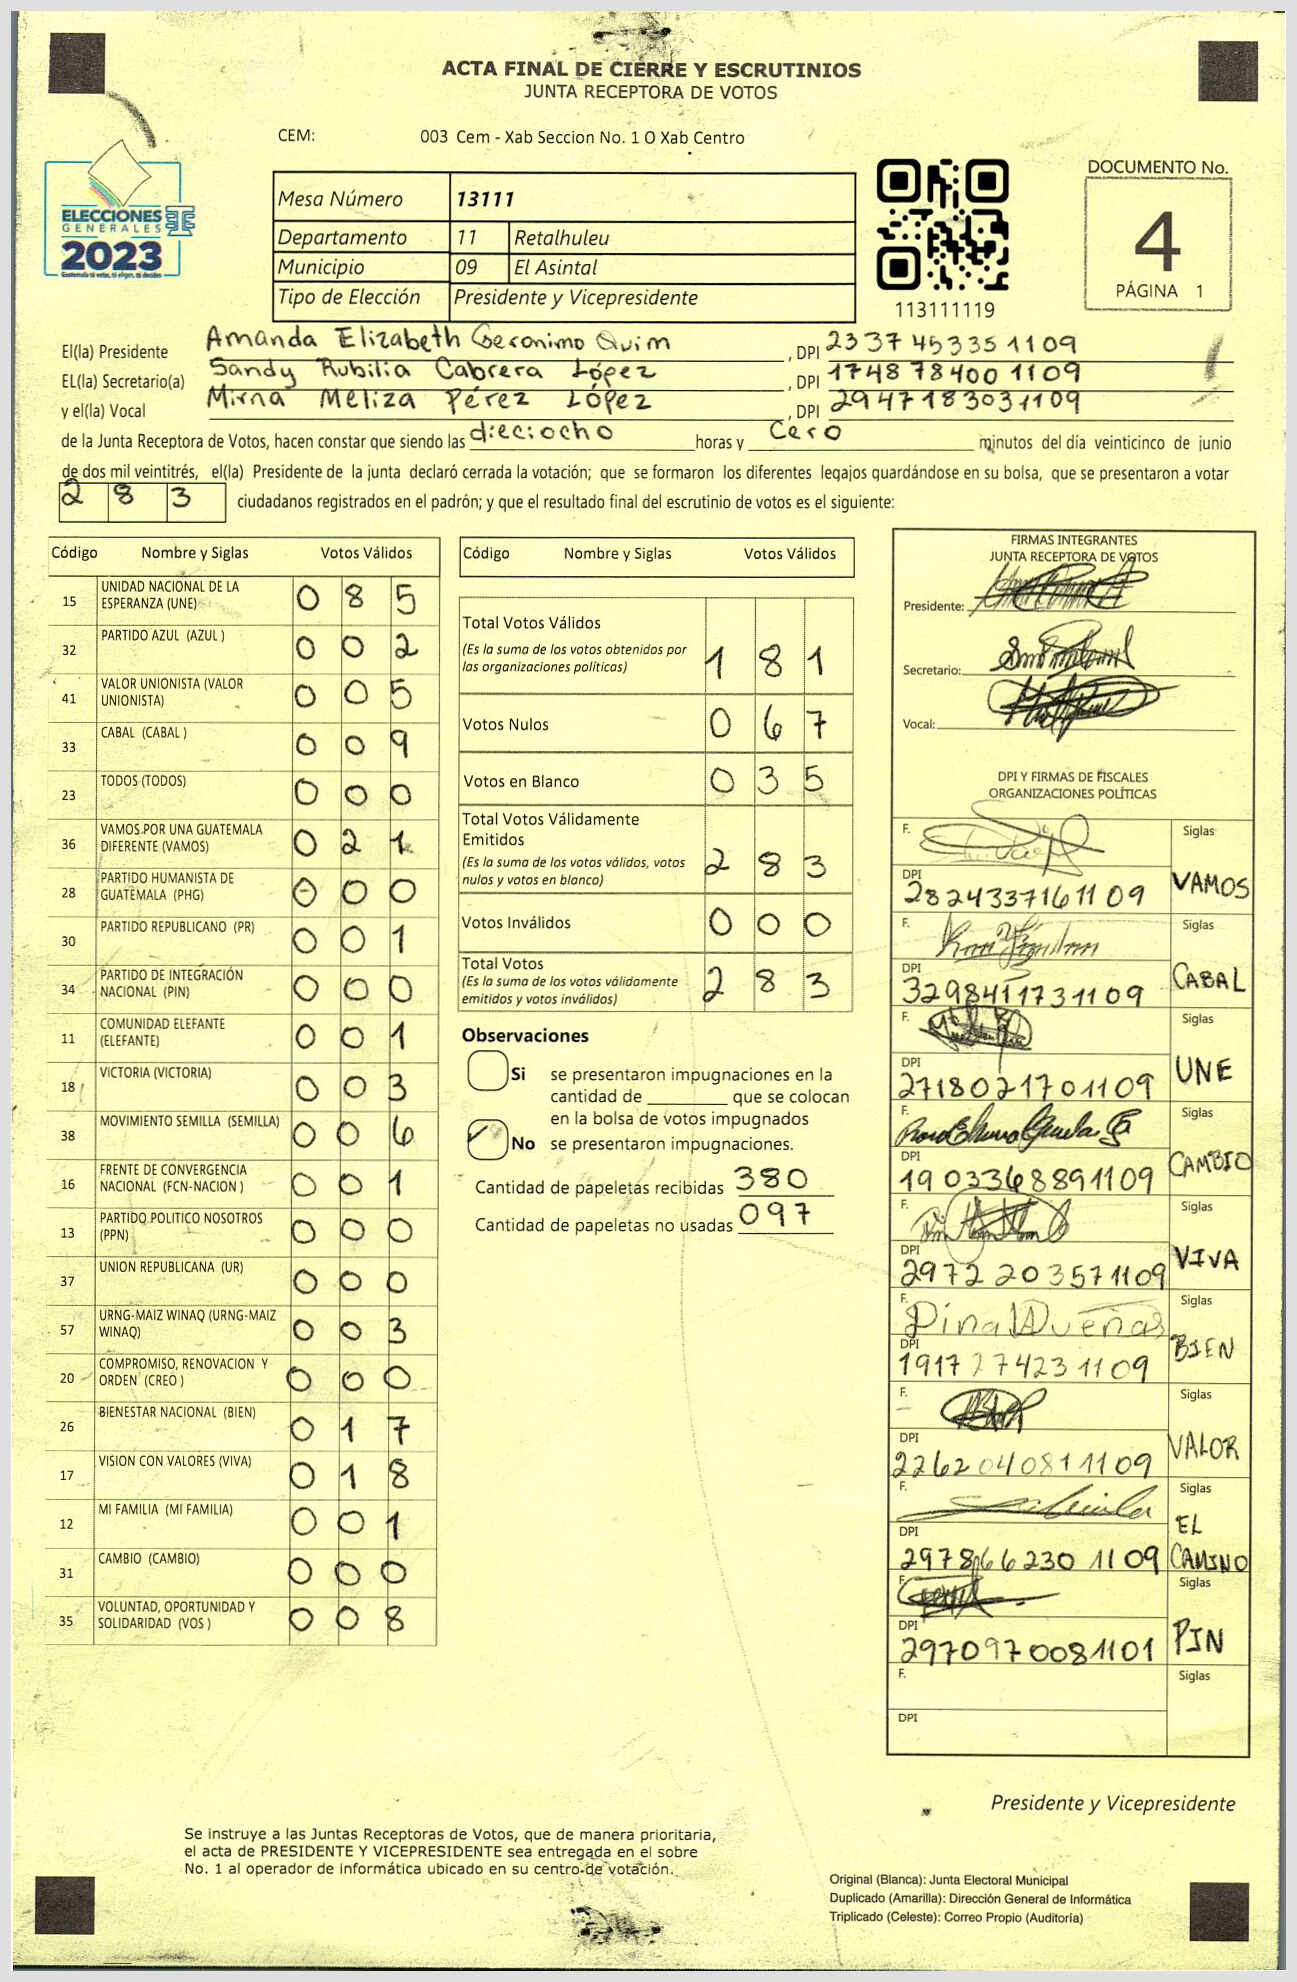 ACTA FINAL DE CIERRE Y ESCRUTINIOS
JUNTA RECEPTORA DE VOTOS
CEM: 003 Cem - Xab Seccion No. 1 O Xab Centro
ELECCIONES
GENERALES
2023
Guatemala tú votas, tú eliges, tú decides
Mesa Número 13111
Departamento 11 Retalhuleu
Municipio 09 El Asintal
Tipo de Elección Presidente y Vicepresidente
113111119
DOCUMENTO No.
4
PÁGINA 1
El(la) Presidente Amanda Elizabeth Geronimo Quim , DPI 2337453351109
EL(la) Secretario(a) Sandy Rubilia Cabrera López , DPI 1748784001109
y el(la) Vocal Mirna Meliza Pérez López , DPI 2947183031109
de la Junta Receptora de Votos, hacen constar que siendo las dieciocho horas y Cero minutos del día veinticinco de junio
de dos mil veintitrés, el(la) Presidente de la junta declaró cerrada la votación; que se formaron los diferentes legajos guardándose en su bolsa, que se presentaron a votar
283 ciudadanos registrados en el padrón; y que el resultado final del escrutinio de votos es el siguiente:
Código Nombre y Siglas Votos Válidos
15 UNIDAD NACIONAL DE LA ESPERANZA (UNE) 0 8 5
32 PARTIDO AZUL (AZUL ) 0 0 2
41 VALOR UNIONISTA (VALOR UNIONISTA) 0 0 5
33 CABAL (CABAL ) 0 0 9
23 TODOS (TODOS) 0 0 0
36 VAMOS POR UNA GUATEMALA DIFERENTE (VAMOS) 0 2 1
28 PARTIDO HUMANISTA DE GUATEMALA (PHG) 0 0 0
30 PARTIDO REPUBLICANO (PR) 0 0 1
34 PARTIDO DE INTEGRACIÓN NACIONAL (PIN) 0 0 0
11 COMUNIDAD ELEFANTE (ELEFANTE) 0 0 1
18 VICTORIA (VICTORIA) 0 0 3
38 MOVIMIENTO SEMILLA (SEMILLA) 0 0 6
16 FRENTE DE CONVERGENCIA NACIONAL (FCN-NACION ) 0 0 1
13 PARTIDO POLITICO NOSOTROS (PPN) 0 0 0
37 UNION REPUBLICANA (UR) 0 0 0
57 URNG-MAIZ WINAQ (URNG-MAIZ WINAQ) 0 0 3
20 COMPROMISO, RENOVACION Y ORDEN (CREO ) 0 0 0
26 BIENESTAR NACIONAL (BIEN) 0 1 7
17 VISION CON VALORES (VIVA) 0 1 8
12 MI FAMILIA (MI FAMILIA) 0 0 1
31 CAMBIO (CAMBIO) 0 0 0
35 VOLUNTAD, OPORTUNIDAD Y SOLIDARIDAD (VOS ) 0 0 8
Código Nombre y Siglas Votos Válidos
Total Votos Válidos
(Es la suma de los votos obtenidos por
las organizaciones políticas) 1 8 1
Votos Nulos 0 6 7
Votos en Blanco 0 3 5
Total Votos Válidamente
Emitidos
(Es la suma de los votos válidos, votos
nulos y votos en blanco) 2 8 3
Votos Inválidos 0 0 0
Total Votos
(Es la suma de los votos válidamente
emitidos y votos inválidos) 2 8 3
Observaciones
Si se presentaron impugnaciones en la
cantidad de ________ que se colocan
en la bolsa de votos impugnados
No se presentaron impugnaciones.
Cantidad de papeletas recibidas 380
Cantidad de papeletas no usadas 097
FIRMAS INTEGRANTES
JUNTA RECEPTORA DE VOTOS
Presidente:
Secretario:
Vocal:
DPI Y FIRMAS DE FISCALES
ORGANIZACIONES POLÍTICAS
F. Siglas
DPI 2824337161109 VAMOS
F. Siglas
DPI 3298411731109 CABAL
F. Siglas
DPI 2718021701109 UNE
F. Siglas
DPI 1903368891109 CAMBIO
F. Siglas
DPI 2972203571109 VIVA
F. Dina Dueñas Siglas
DPI 1917274231109 BIEN
F. Siglas
DPI 2262040811109 VALOR
F. Siglas
DPI 2978662301109 EL CAMINO
F. Siglas
DPI 2970970081101 PIN
F. Siglas
DPI
Presidente y Vicepresidente
Se instruye a las Juntas Receptoras de Votos, que de manera prioritaria,
el acta de PRESIDENTE Y VICEPRESIDENTE sea entregada en el sobre
No. 1 al operador de informática ubicado en su centro de votación.
Original (Blanca): Junta Electoral Municipal
Duplicado (Amarilla): Dirección General de Informática
Triplicado (Celeste): Correo Propio (Auditoría)